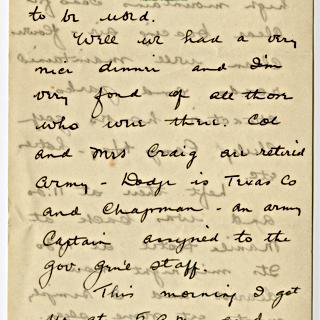 to be used.
Well we had a very
nice dinner and I'm
very fond of all those
who were there. Col
and Mrs Craig are retired
army - Dodge is Texas Co
and Chapman - an army
Captain assigned to the
Gov. Gen'l staff.
This morning I got
up at 5 A.M. and